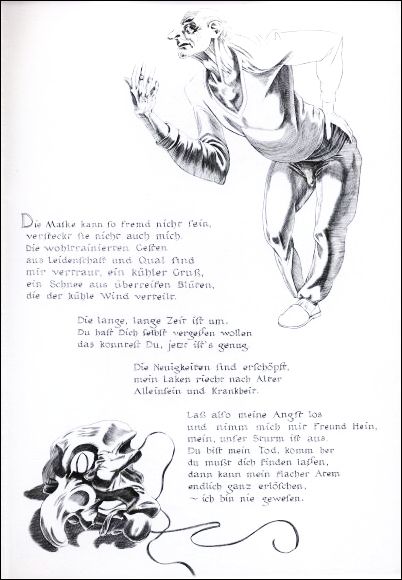 Die Maske kann so fremd nicht sein,
versteckt sie nicht auch mich.
Die wohltrainierten Gesten
aus Leidenschaft und Qual sind
mir vertraut, ein kühler Gruß,
ein Schnee aus überreifen Blüten,
die der kühle Wind verteilt.
Die lange, lange Zeit ist um.
Du hast Dich selbst vergessen wollen
das konntest Du, jetzt ist's genug.
Die Neuigkeiten sind erschöpft,
mein Laken riecht nach Alter
Alleinsein und Krankheit.
Laß also meine Angst los
und nimm mich mit Freund Hein,
mein, unser Sturm ist aus
Du bist mein Tod, komm her
du mußt dich finden lassen,
dann kann mein flacher Atem
endlich ganz erlöschen.
~ ich bin nie gewesen.